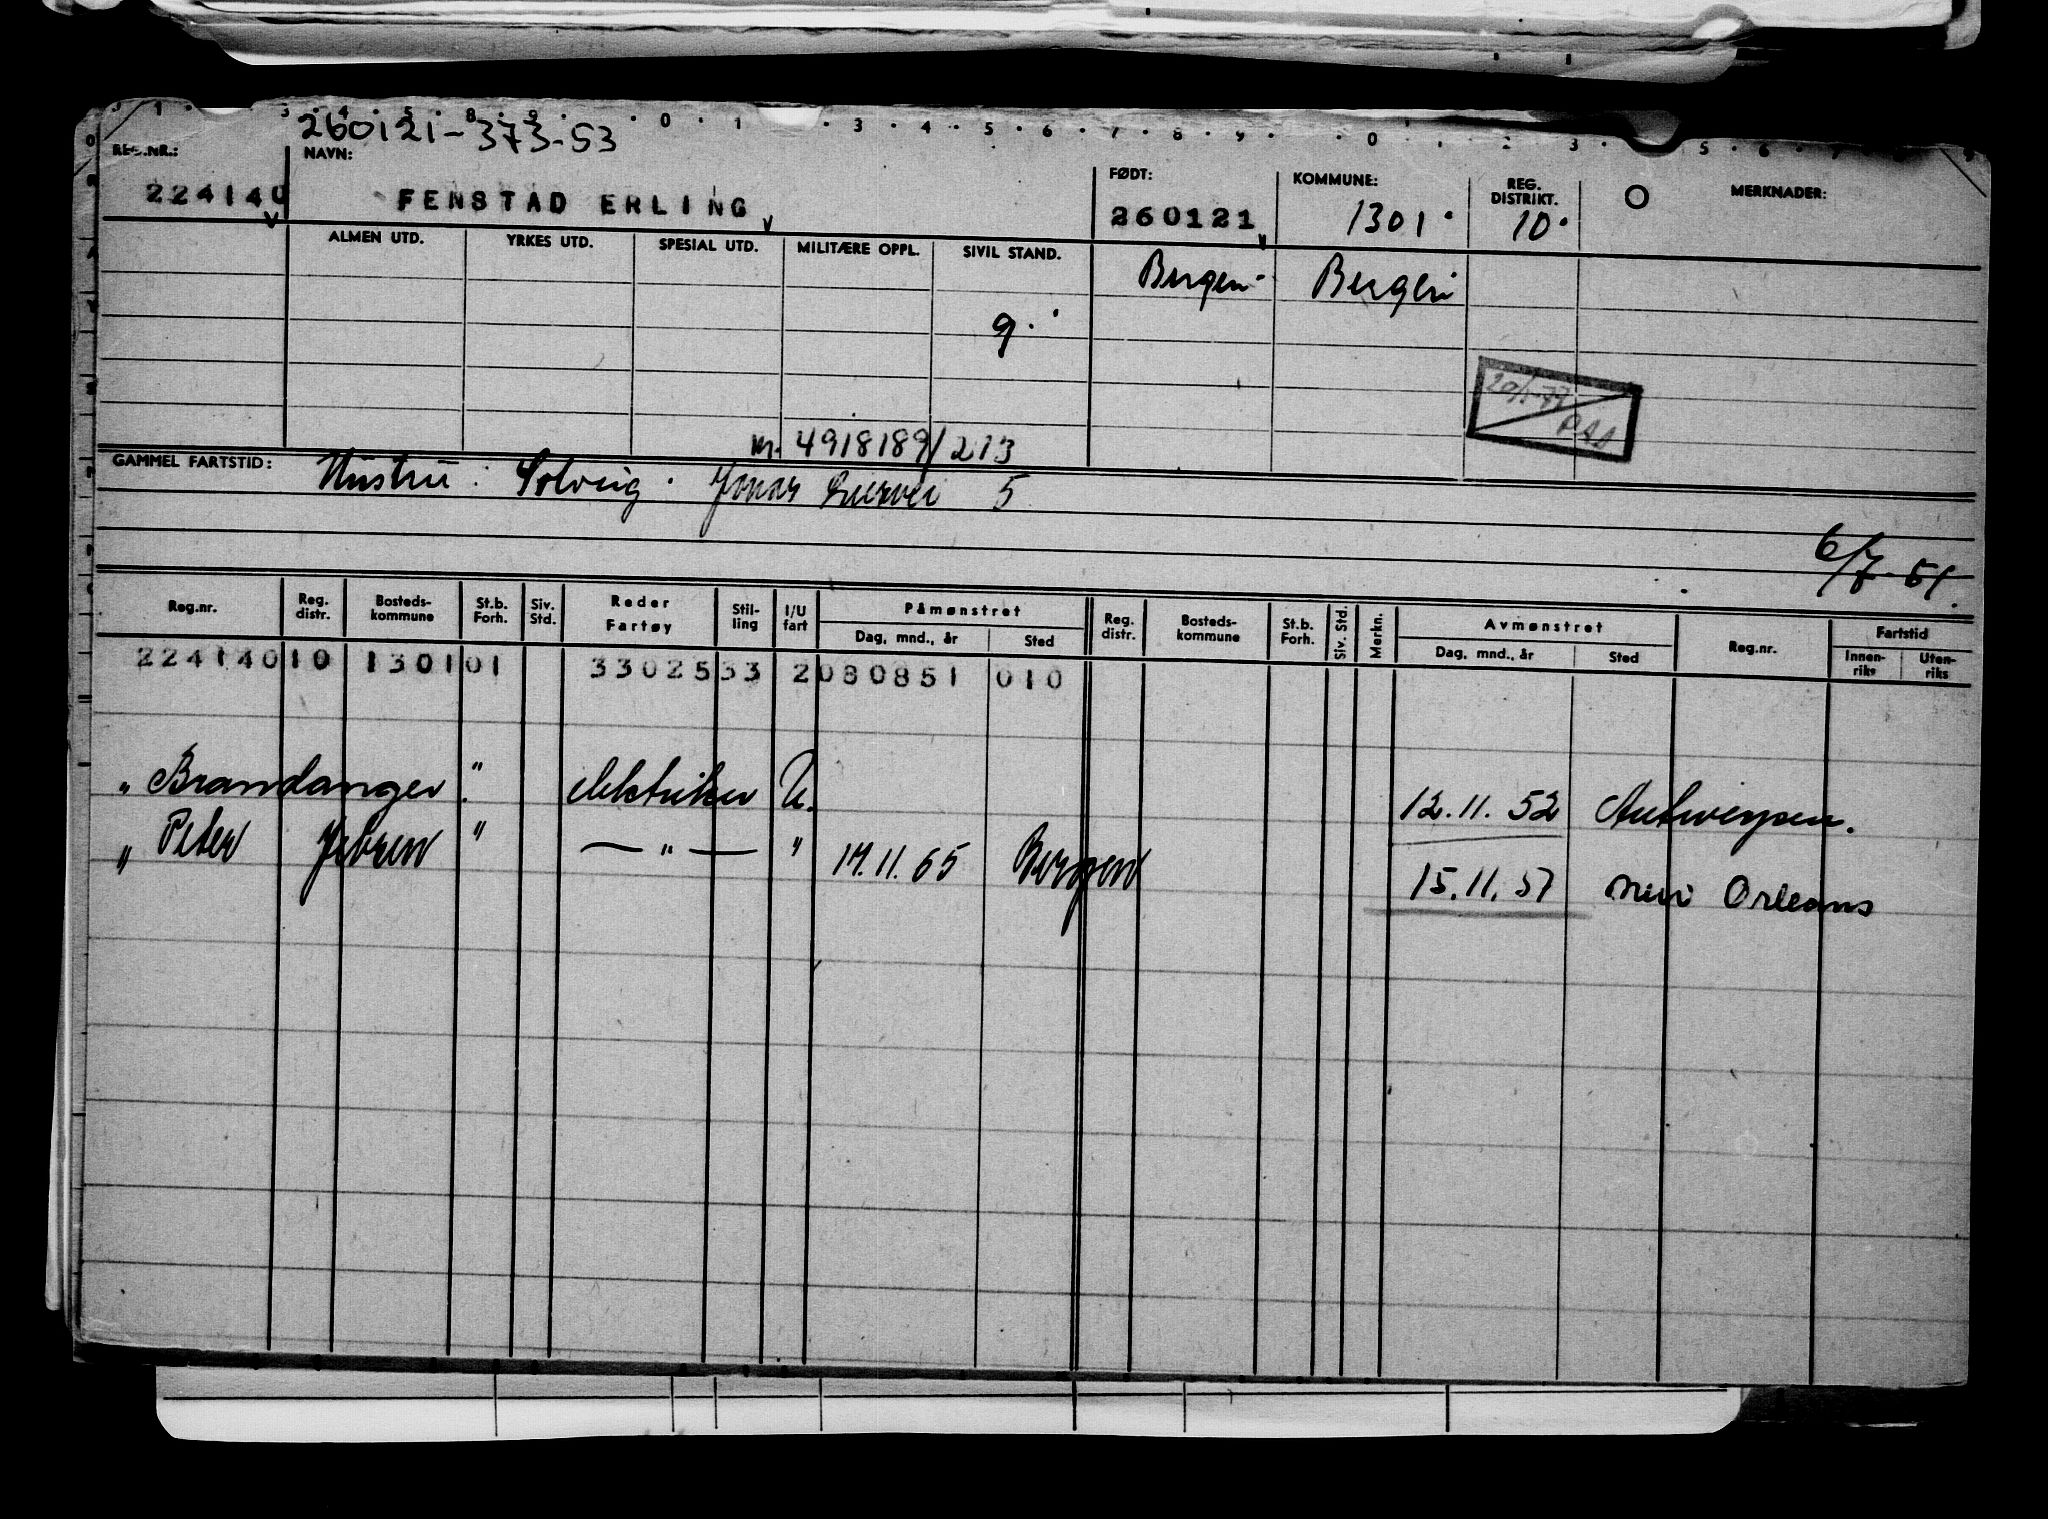 260121-373-53
REG.NR.: NAVN: FØDT: KOMMUNE: REG. DISTRIKT. MERKNADER:
224140 FENSTAD ERLING 260121 1301 10
ALMEN UTD. YRKES UTD. SPESIAL UTD. MILITÆRE OPPL. SIVIL STAND.
Bergen Bergen
g.
nr. 4918189/213
GAMMEL FARTSTID: Hustru: Solveig. 5
6/7-51.
Reg.nr. Reg. distr. Bosteds-kommune St.b. Forh. Siv. Std. Reder Fartøy Stil-ling I/U fart Påmønstret Reg. distr. Bosteds-kommune St.b. Forh. Siv. Std. Merkn. Avmønstret Reg.nr. Fartstid
Dag, mnd., år Sted Dag, mnd., år Sted Innen-riks Uten-riks
224140 10 1301 01 33025 33 2 080851 010
" Brandanger. " elektriker U. 12.11.52 Antwerpen.
" Peter Jebsen " — " — " 14.11.65 Bergen 15.11.57 New Orleans